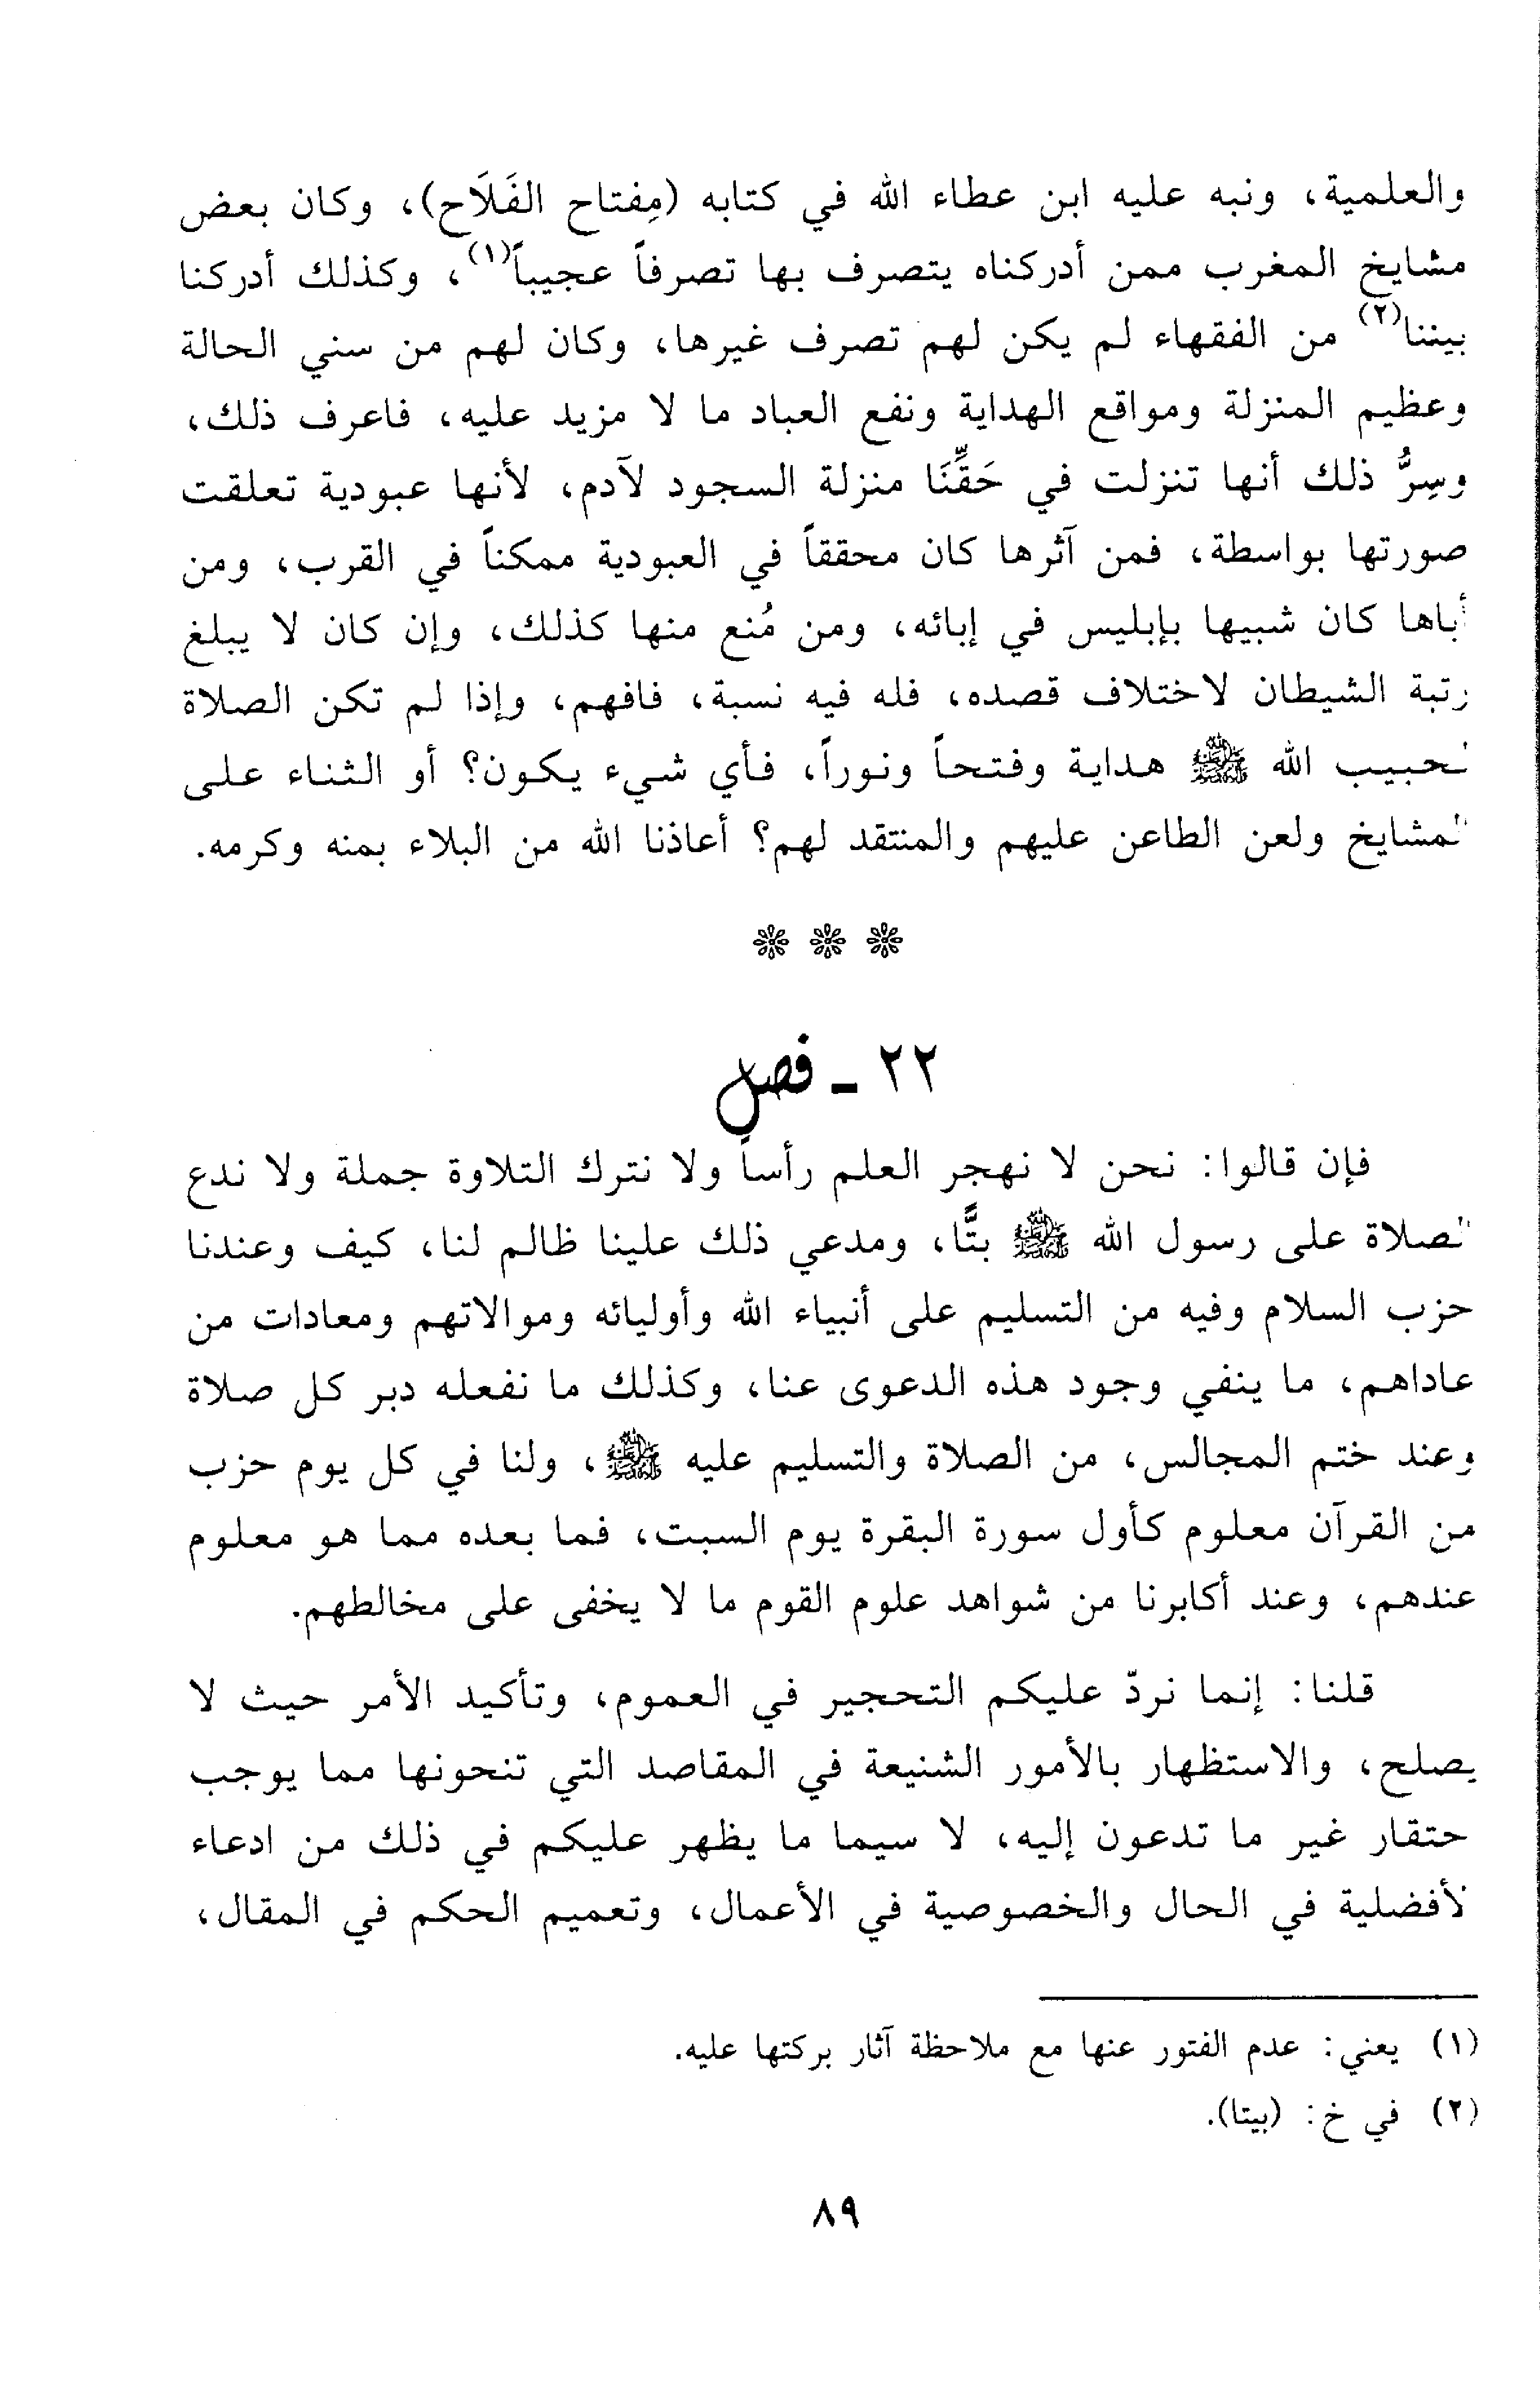 والعلمية، ونبه عليه ابن عطاء الله في كتابه (مِفتاح الفَلاَح)، وكان بعض
مشايخ المغرب ممن أدركناه يتصرف بها تصرفاً عجيباً(١)، وكذلك أدركنا
بيننا(٢) من الفقهاء لم يكن لهم تصرف غيرها، وكان لهم من سني الحالة
وعظيم المنزلة ومواقع الهداية ونفع العباد ما لا مزيد عليه، فاعرف ذلك،
وسِرُّ ذلك أنها تنزلت في حَقِّنَا منزلة السجود لآدم، لأنها عبودية تعلقت
صورتها بواسطة، فمن آثرها كان محققاً في العبودية ممكناً في القرب، ومن
أباها كان شبيها بإبليس في إبائه، ومن مُنع منها كذلك، وإن كان لا يبلغ
رتبة الشيطان لاختلاف قصده، فله فيه نسبة، فافهم، وإذا لم تكن الصلاة
لحبيب الله ﷺ هداية وفتحاً ونوراً، فأي شيء يكون؟ أو الثناء على
المشايخ ولعن الطاعن عليهم والمنتقد لهم؟ أعاذنا الله من البلاء بمنه وكرمه.
٢٢ ـ فصل
فإن قالوا: نحن لا نهجر العلم رأساً ولا نترك التلاوة جملة ولا ندع
الصلاة على رسول الله ﷺ بتًّا، ومدعي ذلك علينا ظالم لنا، كيف وعندنا
حزب السلام وفيه من التسليم على أنبياء الله وأوليائه وموالاتهم ومعادات من
عاداهم، ما ينفي وجود هذه الدعوى عنا، وكذلك ما نفعله دبر كل صلاة
وعند ختم المجالس، من الصلاة والتسليم عليه ﷺ، ولنا في كل يوم حزب
من القرآن معلوم كأول سورة البقرة يوم السبت، فما بعده مما هو معلوم
عندهم، وعند أكابرنا من شواهد علوم القوم ما لا يخفى على مخالطهم.
قلنا: إنما نردّ عليكم التحجير في العموم، وتأكيد الأمر حيث لا
يصلح، والاستظهار بالأمور الشنيعة في المقاصد التي تنحونها مما يوجب
حتقار غير ما تدعون إليه، لا سيما ما يظهر عليكم في ذلك من ادعاء
لأفضلية في الحال والخصوصية في الأعمال، وتعميم الحكم في المقال،
(١) يعني: عدم الفتور عنها مع ملاحظة آثار بركتها عليه.
(٢) في خ: (بيتا).
٨٩